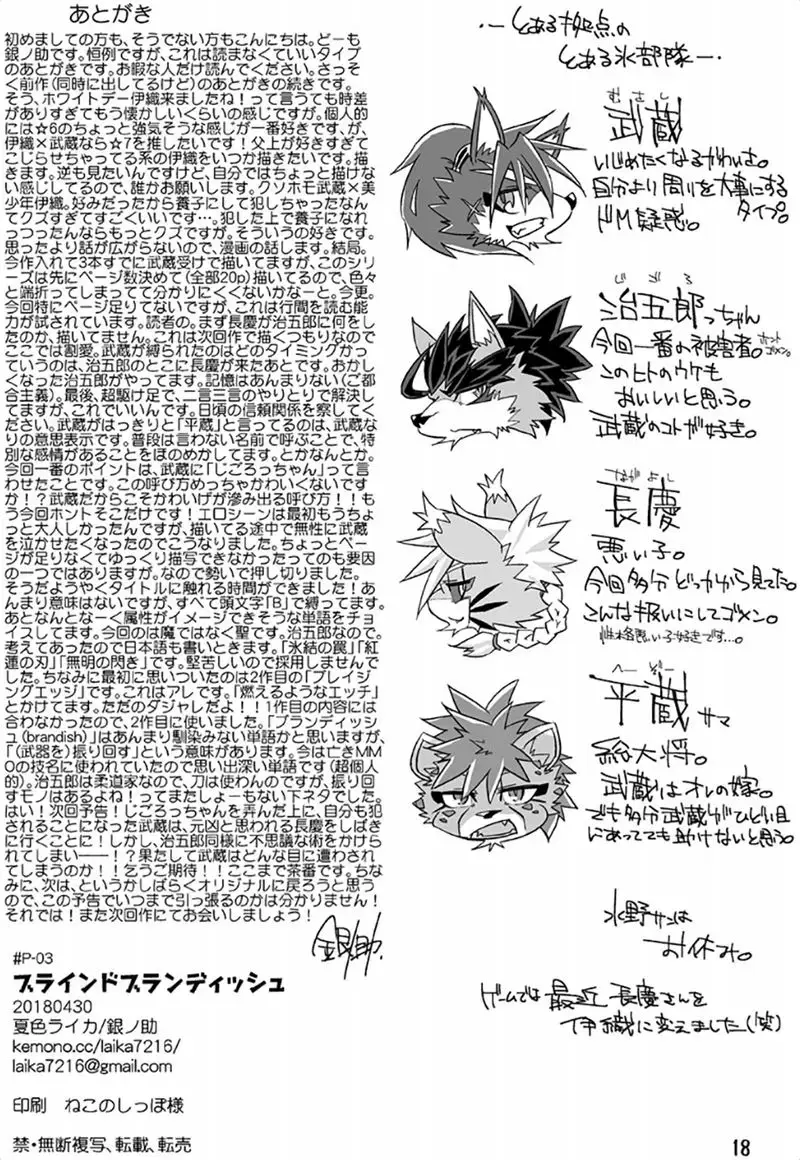 あとがき
初めましての方も、そうでない方もこんにちは。どーも
銀ノ助です。恒例ですが、これは読まなくていいタイプ
のあとがきです。お暇な人だけ読んでください。さっそ
く前作(同時に出してるけど)のあとがきの続きです。
そう、ホワイトデー伊織来ましたね！って言うても時差
がありすぎてもう懐かしいくらいの感じですが。個人的
には☆6のちょっと強気そうな感じが一番好きですが、
伊織×武蔵なら☆7を推したいです！父上が好きすぎて
こじらせちゃってる系の伊織をいつか描きたいです。描
きます。逆も見たいんですけど、自分ではちょっと描けな
い感じしてるので、誰かお願いします。クソホモ武蔵×美
少年伊織。好みだったから養子にして犯しちゃったなん
てクズすぎてすごくいいです…。犯した上で養子になれ
っつったんならもっとクズですが。そういうの好きです。
思ったより話が広がらないので、漫画の話します。結局。
今作入れて3本すでに武蔵受けで描いてますが、このシリ
ーズは先にページ数決めて(全部20p)描いてるので、色々
と端折ってしまってて分かりにくくないかなーと。今更。
今回特にページ足りてないですが、これは行間を読む能
力が試されています。読者の。まず長慶が治五郎に何をし
たのか、描いてません。これは次回作で描くつもりなので
ここでは割愛。武蔵が縛られたのはどのタイミングかっ
ていうのは、治五郎のとこに長慶が来たあとです。おか
しくなった治五郎がやってます。記憶はあんまりない(ご都
合主義)。最後、超駆け足で、二言三言のやりとりで解決し
てますが、これでいいんです。日頃の信頼関係を察してく
ださい。武蔵がはっきりと「平蔵」と言ってるのは、武蔵な
りの意思表示です。普段は言わない名前で呼ぶことで、特
別な感情があることをほのめかしてます。とかなんとか。
今回一番のポイントは、武蔵に「じごろっちゃん」って言
わせたことです。この呼び方めっちゃかわいくないです
か！？武蔵だからこそかわいげが滲み出る呼び方！！も
う今回ホントそこだけです！エロシーンは最初もうちょ
っと大人しかったんですが、描いてる途中で無性に武蔵
を泣かせたくなったのでこうなりました。ちょっとペー
ジが足りなくてゆっくり描写できなかったってのも要因
の一つではありますが。なので勢いで押し切りました。
そうだようやくタイトルに触れる時間ができました！あ
んまり意味はないですが、すべて頭文字「B」で縛ってます。
あとなんとなーく属性がイメージできそうな単語をチョ
イスしてます。今回のは魔ではなく聖です。治五郎なので。
考えてあったので日本語も書いときます。「氷結の罠」「紅
蓮の刃」「無明の閃き」です。堅苦しいので採用しませんで
した。ちなみに最初に思いついたのは2作目の「ブレイジ
ングエッジ」です。これはアレです。「燃えるようなエッチ」
とかけてます。ただのダジャレだよ！！1作目の内容には
合わなかったので、2作目に使いました。「ブランディッシ
ュ(brandish)」はあんまり馴染みない単語かと思いますが、
「(武器を)振り回す」という意味があります。今は亡きMM
Oの技名に使われていたので思い出深い単語です(超個人
的)。治五郎は柔道家なので、刀は使わんのですが、振り回
すモノはあるよね！ってまたしょーもない下ネタでした。
はい！次回予告！じごろっちゃんを弄んだ上に、自分も犯
されることになった武蔵は、元凶と思われる長慶をしばき
に行くことに！しかし、治五郎同様に不思議な術をかけら
れてしまい――！？果たして武蔵はどんな目に遭わされ
てしまうのか！！乞うご期待！！ここまで茶番です。ちな
みに、次は、というかしばらくオリジナルに戻ろうと思う
ので、この予告でいつまで引っ張るのかは分かりません！
それでは！また次回作にてお会いしましょう！
銀ノ助.
#P-03
ブラインドブランディッシュ
20180430
夏色ライカ/銀ノ助
kemono.cc/laika7216/
laika7216@gmail.com
印刷　ねこのしっぽ様
禁・無断複写、転載、転売
・―とある拠点の
とある氷部隊―・
むさし
武蔵
いじめたくなるかわいさ。
自分より周りを大事にする
タイプ。
ドM疑惑。
じごろ
治五郎っちゃん
今回一番の被害者。ホントゴメン。
このヒトのウケも
おいしいと思う。
武蔵のコトが好き。
ながよし
長慶
悪い子。
今回多分どっかから見てた。
こんな扱いにしてゴメン。
性格悪い子好きです…。
へーぞー
平蔵サマ
総大将。
武蔵はオレの嫁。
でも多分武蔵がひどい目
にあってても助けないと思う。
水野サンは
お休み。
ゲームでは最近長慶さんを
伊織に変えました(笑)
18